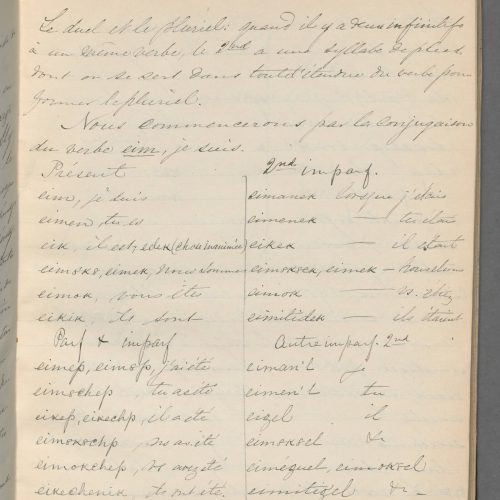 Le duel et le pluriel: quand il y a deux infinitifs
à un même verbe, le 2nd a une syllabe de plus,
dont on se sert dans toute l'étendue du verbe pour
former le pluriel.
Nous commencerons par la conjugaison
du verbe eim, je suis.
Présent
eim, je suis
eimen, tu es
eik, il est, edek (chose inanimée)
eimsks, eimek, nous sommes
eimok, vous êtes
eikik, ils sont
Parf & imparf
eimep, eimsp, j'ai été
eimschep, tu as été
eikep, eikechp, il a été
eimskschp, ns av. été
eimokchep, vs avez été
eikechenik, ils ont été
2nd imparf.
eimanek lorsque j'étais
eimenek — tu étais
eikek — il était
eimsksek, eimek — nous étions
eimok — vs. étiez
eimitidek — ils étaient
Autre imparf. 2nd
eiman'l je
eimen'l tu
eigel il
eimsksel &
eiméquel, eimoksel
eimitigel & -